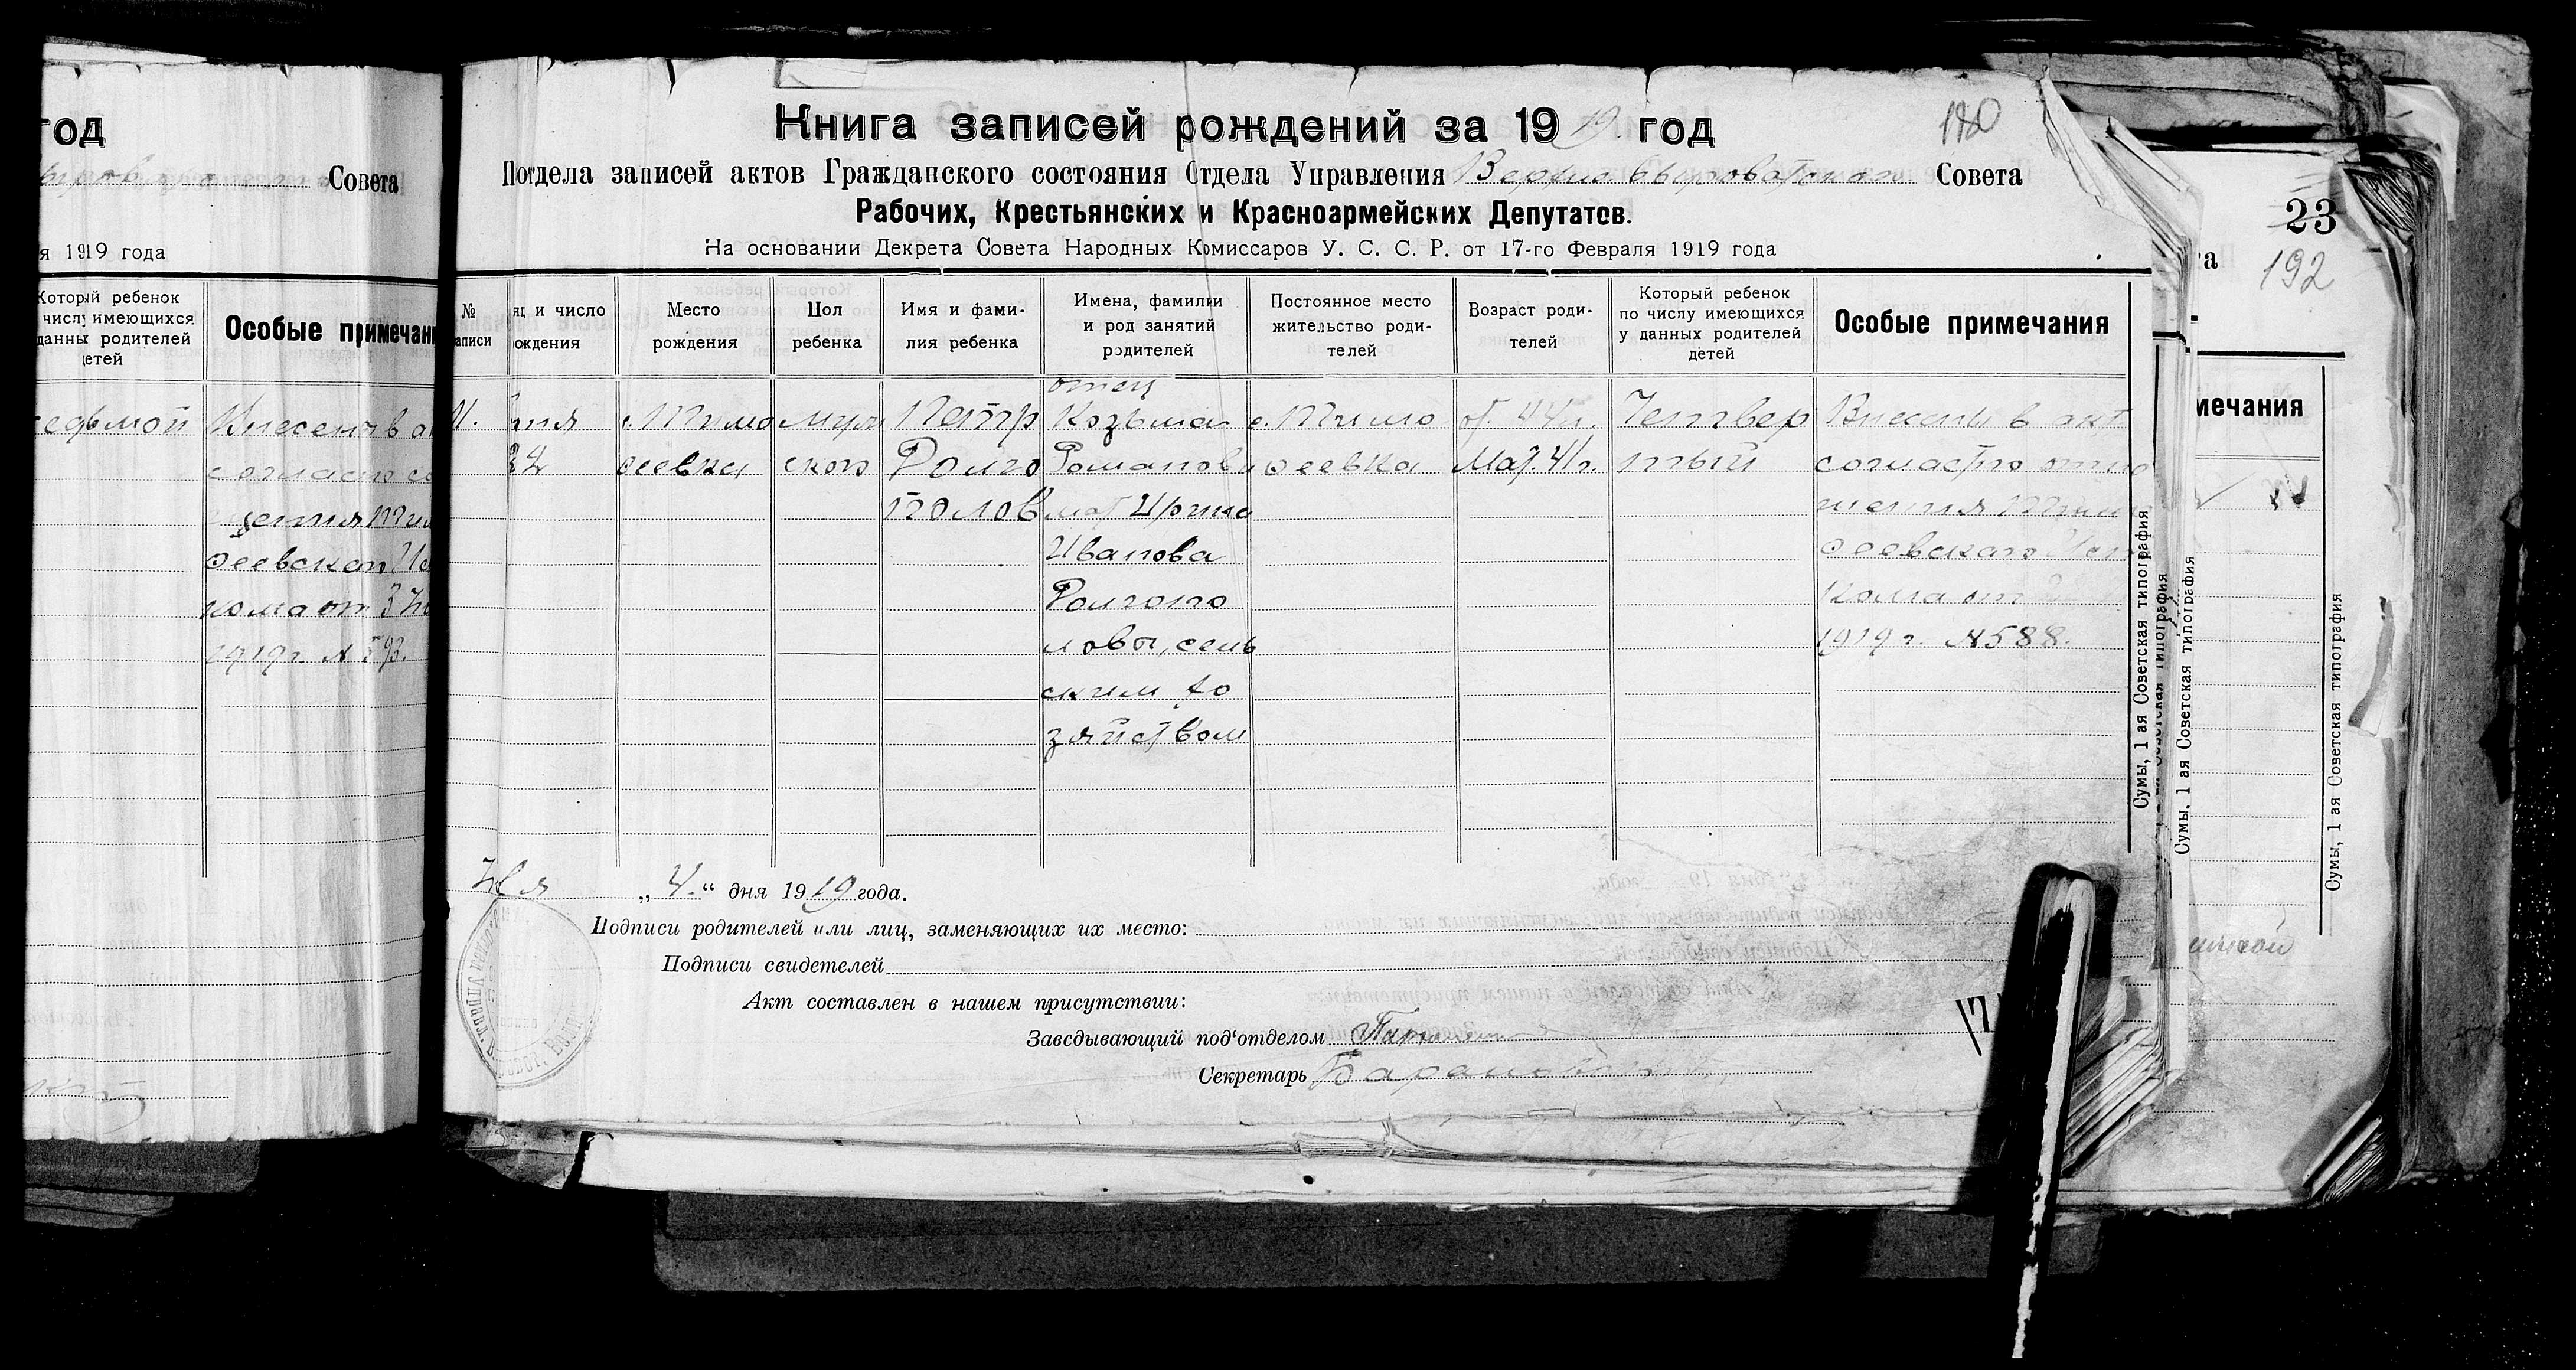 год
Совета
я 1919 года
Который ребенок
числу имеющихся
данных родителей
детей
Особые примечан
седьмой
Внесен в а
согласно со
щения Тим
офеевскаго Ис
кома от 3 Ію
1919 г. № 593.
Книга записей рождений за 1919 год
180
Подотдела записей актов Гражданского состояния Отдела Управления Верхне Сыроватского Совета
Рабочих, Крестьянских и Красноармейских Депутатов.
На основании Декрета Совета Народных Комиссаров У. С. С. Р. от 17-го Февраля 1919 года
№
аписи
яц и число
ождения
Место
рождения
Пол
ребенка
Имя и фами-
лия ребенка
Имена, фамилии
и род занятий
родителей
Постоянное место
жительство роди-
телей
Возраст роди-
телей
Который ребенок
по числу имеющихся
у данных родителей
детей
Особые примечания
ня
с. Тимо
феевка
муж
ской
Петр
Долго
полов
отец
Козьма
Романов
мат Ирина
Иванова
Долгопо
ловы, сель
ским хо
зяйством
с. Тимо
феевка
от. 44 л.
Мат. 41 г.
Четвер
тый
Внесен в акт
согласно отно
шения Тим
офеевскаго Исп
кома от
1919 г. № 588.
„ 4. “ дня 1919 года.
Подписи родителей или лиц, заменяющих их место:
Подписи свидетелей
Акт составлен в нашем присутствии:
Заведывающий под'отделом
Секретарь
17
Сумы, 1 ая Советская типография
Сумы, 1 ая Советская типография
23
192
та
мечания
Сумы, 1 ая Советская типография